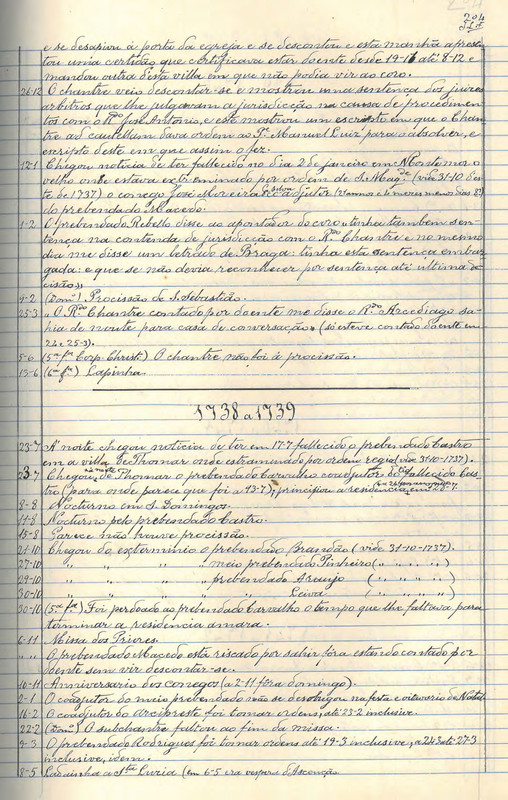 204
e se desapiou á porta da egreja e se descontou e esta manhã apresen
tou uma certidão que certificava estar doente desde 19-11 até 8-12 e
mandou outra desta villa em que não podia vir ao coro.
21-12 O chantre veiu descontar-se e mostrou uma sentença dos juizes
arbitros que lhe julgaram a jurisdicção na causa de procedimen
tos com o Rdo José Antonio, e este mostrou um escripto em que o Chan
tre ad cautellum dava ordem ao Pe Manuel Luiz para o absolver, e
escripto deste em que assim o fez.
12-1 Chegou noticia de ter fallecido no dia 2 de janeiro em Montemor o
velho onde estava exterminado por ordem de S. Magde (vide 31-10 des
te de 1737) o conego José Moreira da Silva coadjutor
do prebendado Macedo.
1-2 O prebendado Rebello disse ao apontador do coro "tinha tambem sen-
tença na contenda de jurisdicção com o Rdo Chantre e no mesmo
dia me disse um letrado de Braga: tinha esta sentença embar
gada: e que se não devia reconhecer por sentença até última de
cisão"
9-2 (Domo) Procissão de S. Sebastião.
25-3 "O Rdo Chantre contado por doente me disse o Rdo Arcediago sa-
hia de noute para casa de conversação" (só esteve contado doente em
24 e 25-3).
5-6 (5ª fª Corp. Christ.) O chantre não foi á procissão.
13-6 (6ª fª) Lapinha.
1738 a 1739
23-7 A' noite chegou noticia de ter em 17-7 fallecido o prebendado Castro
em a villa de Thomar onde estava exterminado por ordem regia (vide 31-10-1737).
23-7 Chegou á noite de Thomar o prebendado Carvalho coadjutor do dito fallecido Cas-
tro (para onde parece que foi a 13-7); principiou a residencia em 28-7.
8-8 Nocturno em S. Domingos.
11-8 Nocturno pelo prebendado Castro.
15-8 Parece não houve procissão.
21-10 Chegou do exterminio o prebendado Brandão (vide 31-10-1737).
27-10 " " " " meio prebendado Pinheiro (" " " ")
29-10 " " " " prebendado Araujo (" " " ")
30-10 " " " " Leiva (" " " ")
30-10 (5ª fª) Foi perdoado ao prebendado Carvalho o tempo que lhe faltava para
terminar a residencia amara.
6-11 Missa dos Priores.
" " O prebendado Macedo está riscado por sahir fóra estando contado por
doente sem vir descontar-se.
10-11 Anniversario dos conegos (a 2-11 fôra domingo).
2-1 O coadjutor do meio prebendado não se desobrigou na festa e oitavario do Natal.
16-2 O coadjutor do arcipreste foi tomar ordens, até 23-2 inclusive.
22-2 (Domo) O subchantre faltou ao fim da missa.
9-3 O prebendado Rodrigues foi tomar ordens até 19-3 inclusive, a 24-3 até 27-3
inclusive, idem.
8-5 Ladainha a Sta Luzia (em 6-5 era vespera d'Ascenção